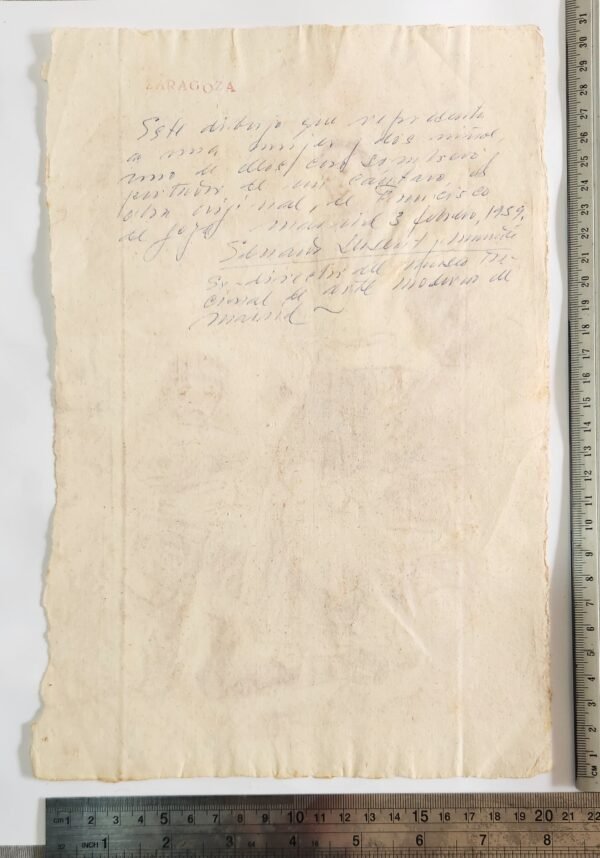 ZARAGOZA
Este dibujo que representa
a una mujer y dos niños,
uno de ellos con sombrero,
de mi
obra original, de Francisco
de Goya Madrid 3 febrero, 1959,
Ex-director del Museo Na-
cional de arte moderno de
Madrid
cm 1 2 3 4 5 6 7 8 9 10 11 12 13 14 15 16 17 18 19 20 21 22
32 INCH 1 2 3 64 4 16 5 6 7 8
31 30 29 28 27 26 25 24 23 22 21 20 19 18 17 16 15 14 13 12 11 10 9 8 7 6 5 4 3 2 1 CM